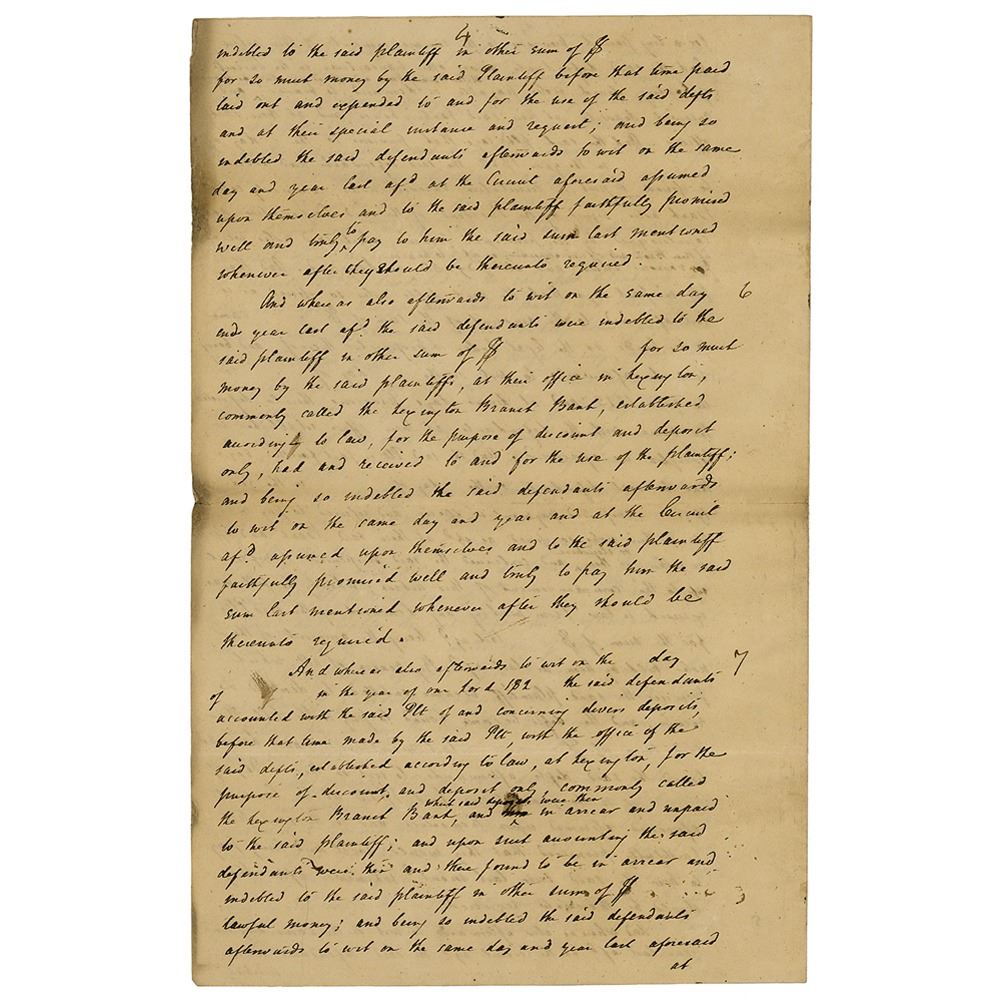 4
indebted to the said plaintiff in other sum of $
for so much money by the said Plaintiff before that time paid
laid out and expended to and for the use of the said defts
and at their special instance and request; and being so
indebted the said defendants afterwards to wit on the same
day and year last afd at the Circuit aforesaid assumed
upon themselves and to the said plaintiff faithfully promised
well and truly to pay to him the said sum last mentioned
whenever after they should be thereunto required.
And whereas also afterwards to wit on the same day 6
and year last afd the said defendants were indebted to the
said plaintiff in other sum of $ for so much
money by the said plaintiffs, at their office in Lexington,
commonly called the Lexington Branch Bank, established
according to law, for the purpose of discount and deposit
only, had and received to and for the use of the plaintiff;
and being so indebted the said defendants afterwards
to wit on the same day and year and at the Circuit
afd assumed upon themselves and to the said plaintiff
faithfully promised well and truly to pay him the said
sum last mentioned whenever after they should be
thereunto required.
And whereas also afterwards to wit on the day 7
of in the year of our Lord 182 the said defendants
accounted with the said Plt of and concerning divers deposits,
before that time made by the said Plt, with the office of the
said defts, established according to law, at Lexington, for the
purpose of discount, and deposit only, commonly called
which said deposits were then
the Lexington Branch Bank, and in arrear and unpaid
to the said plaintiff; and upon such accounting the said
defendants were then and there found to be in arrear and
indebted to the said plaintiff in other sum of $
lawful money; and being so indebted the said defendants
afterwards to wit on the same day and year last aforesaid
at